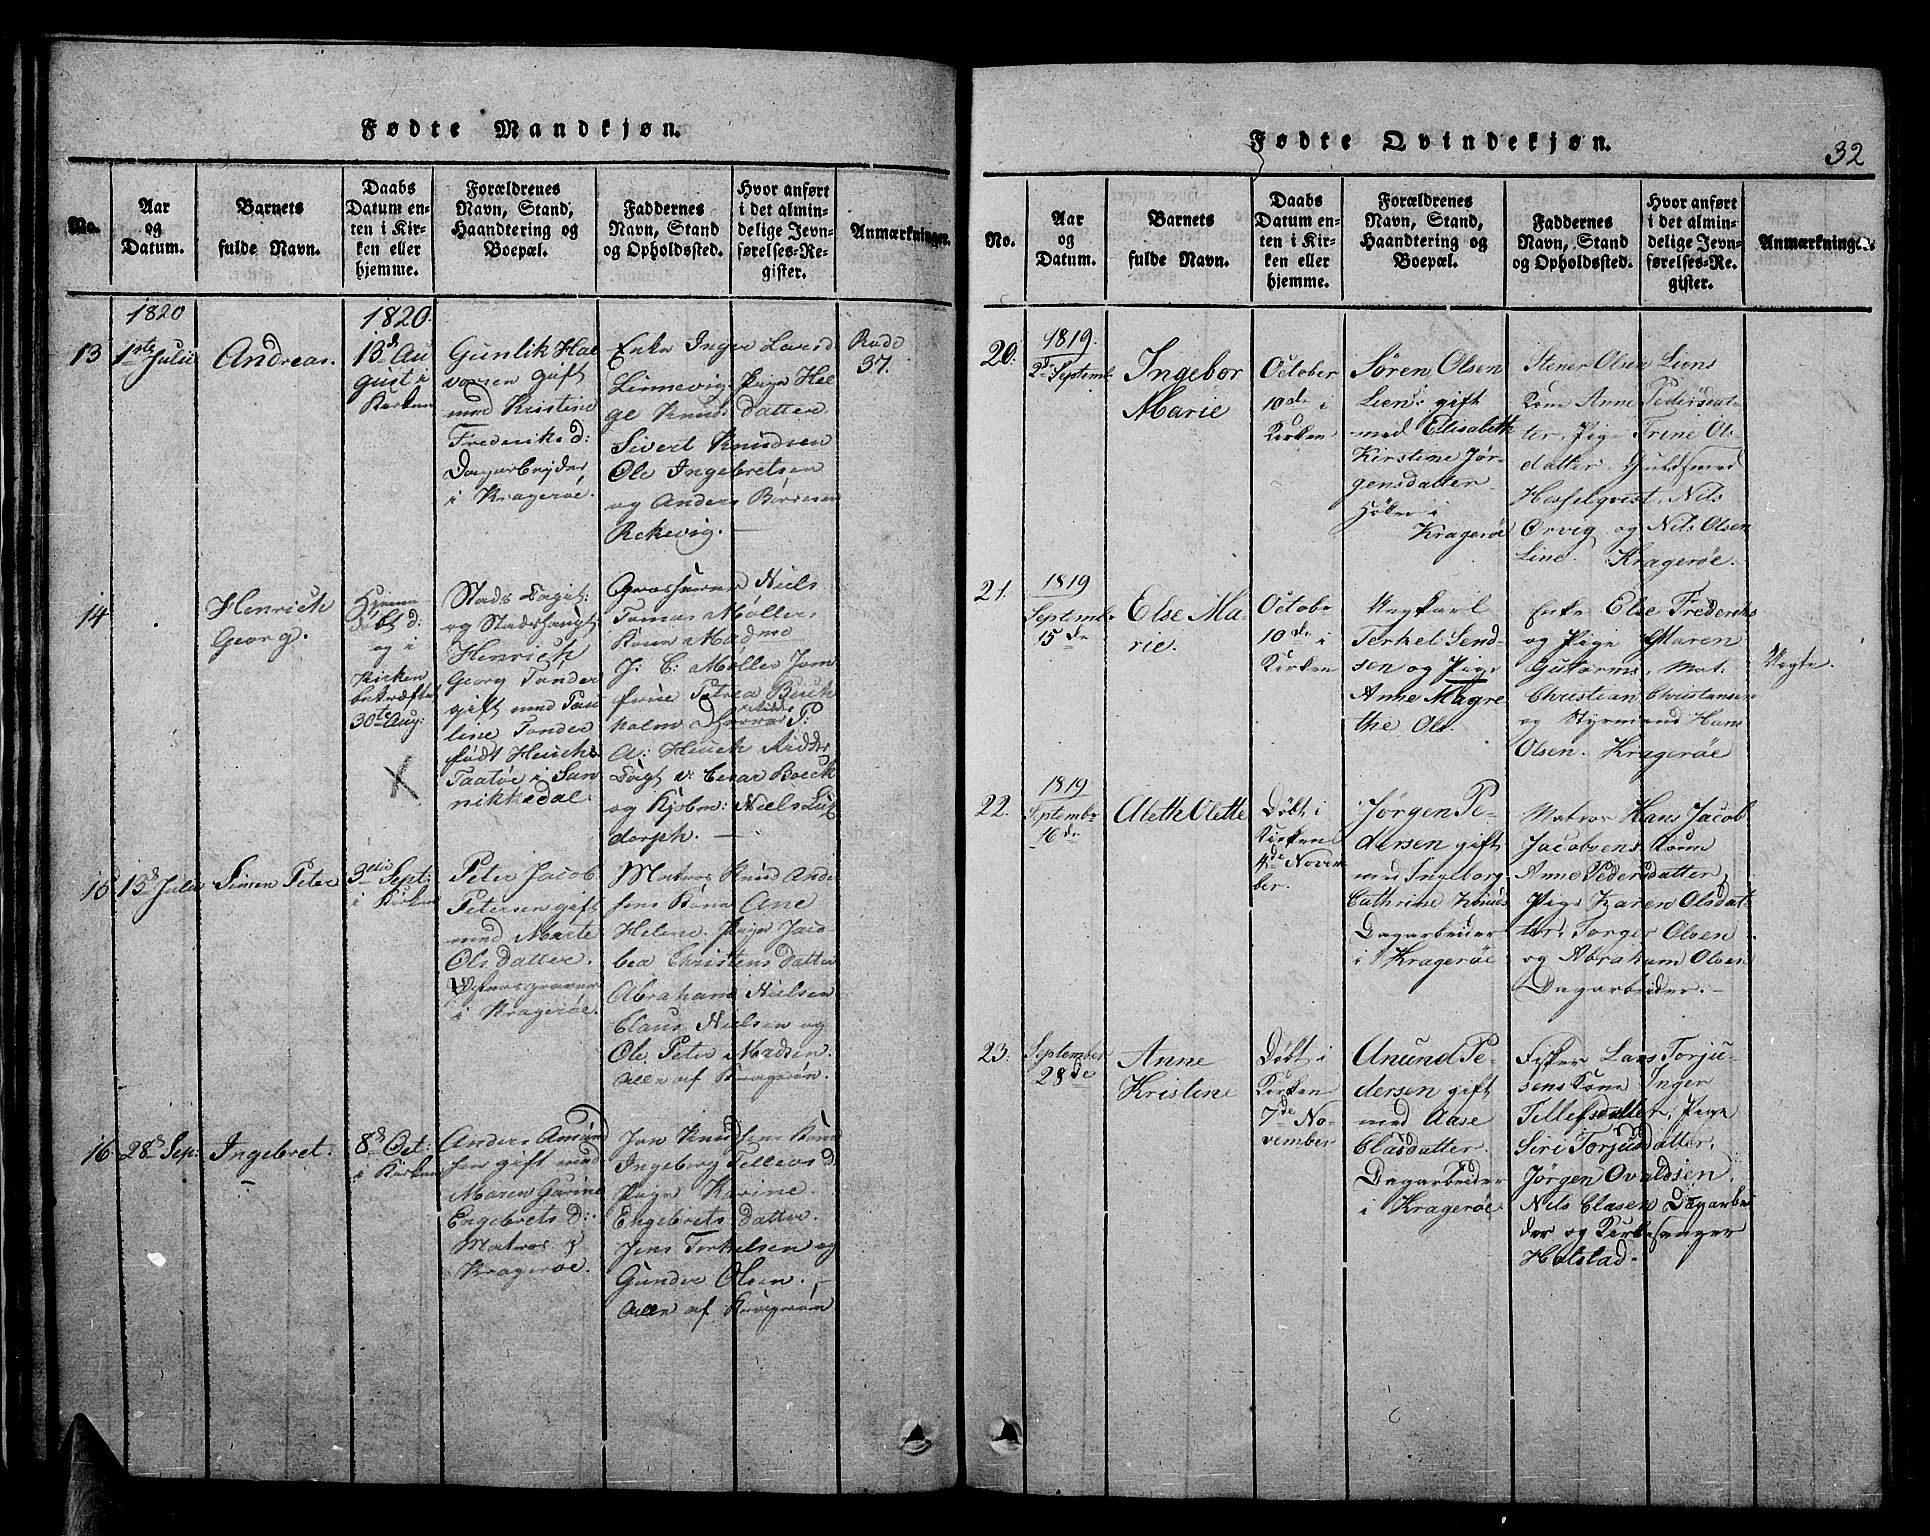 Fødte Mandkjøn.
No.
Aar
og
Datum.
Barnets
fulde Navn.
Daabs
Datum en-
ten i Kir-
ken eller
hjemme.
Forældrenes
Navn, Stand,
Haandtering og
Boepæl.
Faddernes
Navn, Stand
og Opholdssted.
Hvor anført
i det almin-
delige Jevn-
førelses-Re-
gister.
Anmærkninger.
13
1820
1ste Julii
Andreas.
1820.
13d Au
gust i
Kirken
Gunlik Hal
vorsen gift
med Kristine
Frederiks d:
Dagarbeyder
i Kragerøe.
Enke Inger Lavesd
Linnevig. Pige Hel
ge Knuds datter
Sivert Knudsen
Ole Ingebretsen
og Anders Börresen
Rekevig. —
37.
14
Henrich
Georg.
Hjemme
døbt d:
og i
Kirken
bekræftet
30te Aug:
X
Stads
og Stads
Henrich
Georg Tonder
gift med Pau
line Tonder
født Heuchs
Taatøe i San
nikkedal.
Niels
Tomas Møllers
Kone Madme
J: C: Møller Jom
frue Petrea Buck
holm
A: Heuch Ridder
Cesar Boeck
og Kjøbm: Niels Lutz
dorph. —
15
13d Julii
Simen Peter
3die Sept:
i Kirken
Peter Jacob
Petersen gift
med Marte
Ols datter.
i Kragerøe.
Matros Knud Ander
sens Kone Ane
Helene. Pige Jaco
bea Christens datter
Abraham Nielsen
Claus Nielsen og
Ole Peter Madsen.
alle af Kragerøe.
16
28d Sep:
Ingebret.
8d Oct:
i Kirken
Anders Amund
sen gift med
Maren Gurine
Engebrets d:
Matros i
Kragerøe.
Jon Knudsens Kone
Ingeborg Tellevs d
Pige Karine
Engebrets datter.
Jens Terkelsen og
Gunder Olsen. —
alle af Kragerøe
Fødte Qvindekjøn.
32
No.
Aar
og
Datum.
Barnets
fulde Navn.
Daabs
Datum en-
ten i Kir-
ken eller
hjemme.
Forældrenes
Navn, Stand,
Haandtering og
Boepæl.
Faddernes
Navn, Stand
og Opholdssted.
Hvor anført
i det almin-
delige Jevn-
førelses-Re-
gister.
Anmærkninger.
20.
1819.
2d Septemb.
Ingebor
Marie
October
10de i
Kirken
Søren Olsen
Lien: gift
med Elisabeth
Kirstine Jør-
gensdatter.
i
Kragerøe
Stener Olsen Liens
Kone Anne Pedersdat-
ter. Pige Trine Ols-
datter. Guldsmed
Hesselqvist. Nils
Ørvig og Nils Olsen
Line. Kragerøe.
21.
1819
Septembr
15de
Else Ma-
rie.
Octobr
10de i
Kirken
Terkel Send-
sen og Pige
Anne Magre
the Ols.
Enke Else Frederichs
og Pige Maren
Gutorms, Mat.
Christian Christansen
og Styrmand Hans
Olsen. Kragerøe
Uegte.
22.
1819
Septembr
16de
Aleth Olette
Døbt i
Kirken
4de Novem
ber.
Jørgen Pe-
dersen gift
med Ingeborg
Cathrine Knuds
Dagarbeider
i Kragerøe
Matros Hans Jacob
Jacobsens Kone
Anne Pedersdatter,
Pige Karen Olsdat-
ter, Torger Olsen
og Abraham Olsen
Dagarbeider. —
23.
September
28de
Anne
Kristine
Døbt i
Kirken
7de No-
vember
Anund Pe-
dersen gift
med Aase
Clasdatter.
Dagarbeider
i Kragerøe
Fisker Lars Torju-
sens Kone Inger
Tellefsdatter, Pige
Siri Torjusdatter,
Jørgen Ovaldsen,
Nils Clasen Dagarbei
der og Kirkesanger
Halstad.